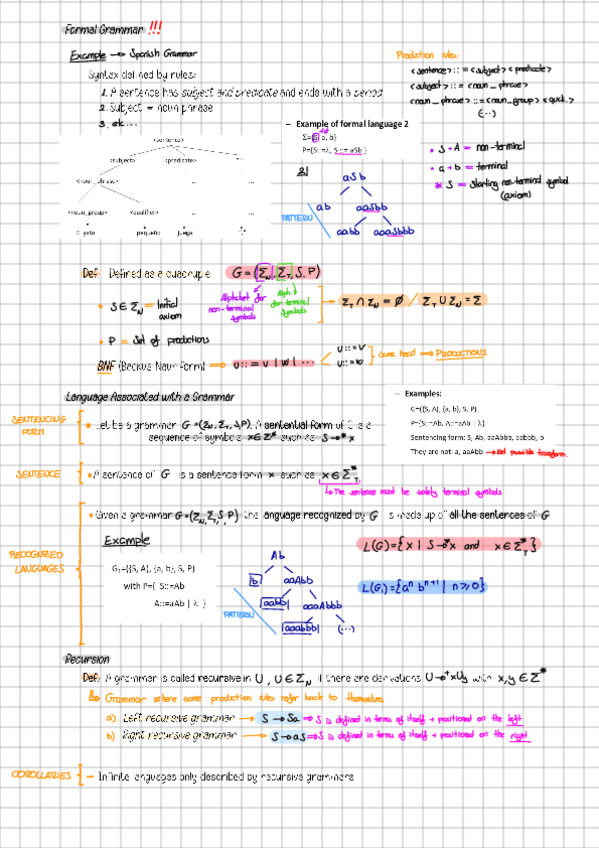 Formal Grammar !!!
Example → Spanish Grammar
Syntax defined by rules:
1. A sentence has subject and predicate and ends with a period
2. Subject = noun phrase
3. etc...
Production rules:
<sentence>::=<subject><predicate>
<subject>::=<noun_phrase>
(...)
<sentence>
<subject> <predicate> ...
<noun_phrase> ... ...
<noun_group> <qualifier> ... ...
El gato pequeño juega
– Example of formal language 2
P={S::=λ, S::=aSb}
• S + A = non-terminal
• a + b = terminal
* S = Starting non-terminal symbol
(axiom)
aSb
ab aaSbb
PATTERN
aabb aaaSbbb
Def: Defined as a quadruple G = (Σ_N, Σ_T, S, P)
• S ∈ Σ_N = Initial axiom
Alphabet for non-terminal symbols
Alph. for terminal symbols
Σ_T ∩ Σ_N = Ø / Σ_T ∪ Σ_N = Σ
• P = Set of productions
BNF (Backus Naur Form) → u::= v | w | ...
u::=v
u::=w
Same head → PRODUCTIONS
Language Associated with a Grammar
SENTENCING FORM
• Let be a grammar G=(Σ_N, Σ_T, S, P). A sentential form of G is a
sequence of symbols x ∈ Σ* such as S →* x
– Examples:
G=({S, A}, {a, b}, S, P)
P={S::=Ab, A::=aAb | λ}
Sentencing form: S, Ab, aaAbbb, aabbb, b
They are not: a, aaAbb → Not possible transform.
SENTENCE
• A sentence of G is a sentence form x such as x ∈ Σ_T*
↳ The sentence must be solely terminal symbols
RECOGNIZED LANGUAGES
• Given a grammar G=(Σ_N, Σ_T, S, P) the language recognized by G is made up of all the sentences of G
Example
G₁=({S, A}, {a, b}, S, P)
with P={ S::=Ab
A::=aAb | λ }
Ab
b aaAbb
PATTERN
aabb aaaAbbb
aaabbb (...)
L(G)={x | S →* x and x ∈ Σ_T*}
L(G₁)={aⁿ bⁿ⁺¹ | n ≥ 0}
Recursion
Def: A grammar is called recursive in U, U ∈ Σ_N if there are derivations U →⁺ xUy with x,y ∈ Σ*
↳ Grammar where some production rules refer back to themselves
a) Left recursive grammar → S → Sa ⇒ S is defined in terms of itself + positioned on the left
b) Right recursive grammar → S → aS ⇒ S is defined in terms of itself + positioned on the right
COROLLARIES – Infinite languages only described by recursive grammars